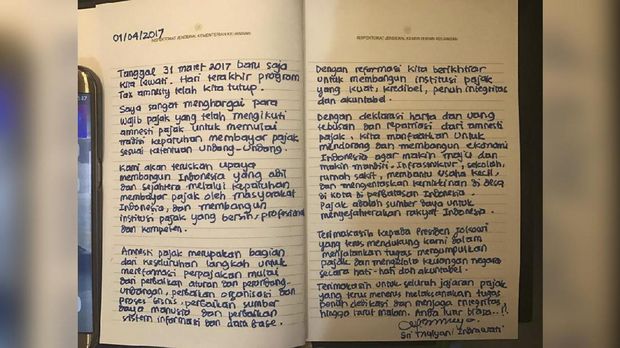 INSPEKTORAT JENDERAL KEMENTERIAN KEUANGAN
01/04/2017
Tanggal 31 maret 2017 baru saja
kita lewati. Hari terakhir program
Tax amnesty telah kita tutup.
Saya sangat menghargai para
wajib pajak yang telah mengikuti
amnesti pajak untuk memulai
tradisi kepatuhan membayar pajak
sesuai ketentuan undang-undang.
Kami akan teruskan upaya
membangun Indonesia yang adil
dan sejahtera melalui kepatuhan
membayar pajak oleh masyarakat
Indonesia, dan membangun
institusi pajak yang bersih, profesional
dan kompeten.
Amnesti pajak merupakan bagian
dari keseluruhan langkah untuk
mereformasi perpajakan mulai
dari perbaikan aturan dan perundang-
undangan, perbaikan organisasi dan
proses bisnis, perbaikan sumber
daya manusia dan perbaikan
sistem informasi dan data base.
INSPEKTORAT JENDERAL KEMENTERIAN KEUANGAN
Dengan reformasi kita berikhtiar
untuk membangun institusi pajak
yang kuat, kredibel, penuh integritas
dan akuntabel.
Dengan deklarasi harta dan uang
tebusan dan repatriasi dari amnesti
pajak, kita manfaatkan untuk
mendorong dan membangun ekonomi
Indonesia agar makin maju dan
makin mandiri. Infrastruktur, sekolah,
rumah sakit, membantu usaha kecil,
dan mengentaskan kemiskinan di desa
di kota di perbatasan Indonesia.
Pajak adalah sumber daya untuk
mensejahterakan rakyat Indonesia.
Terimakasih kepada Presiden Jokowi
yang terus mendukung kami dalam
menjalankan tugas mengumpulkan
pajak dan mengelola keuangan negara
secara hati-hati dan akuntabel.
Terimakasih untuk seluruh jajaran pajak
yang terus menerus melaksanakan tugas
penuh dedikasi dan menjaga integritas
hingga larut malam. Anda luar biasa..!!
Sri Mulyani Indrawati